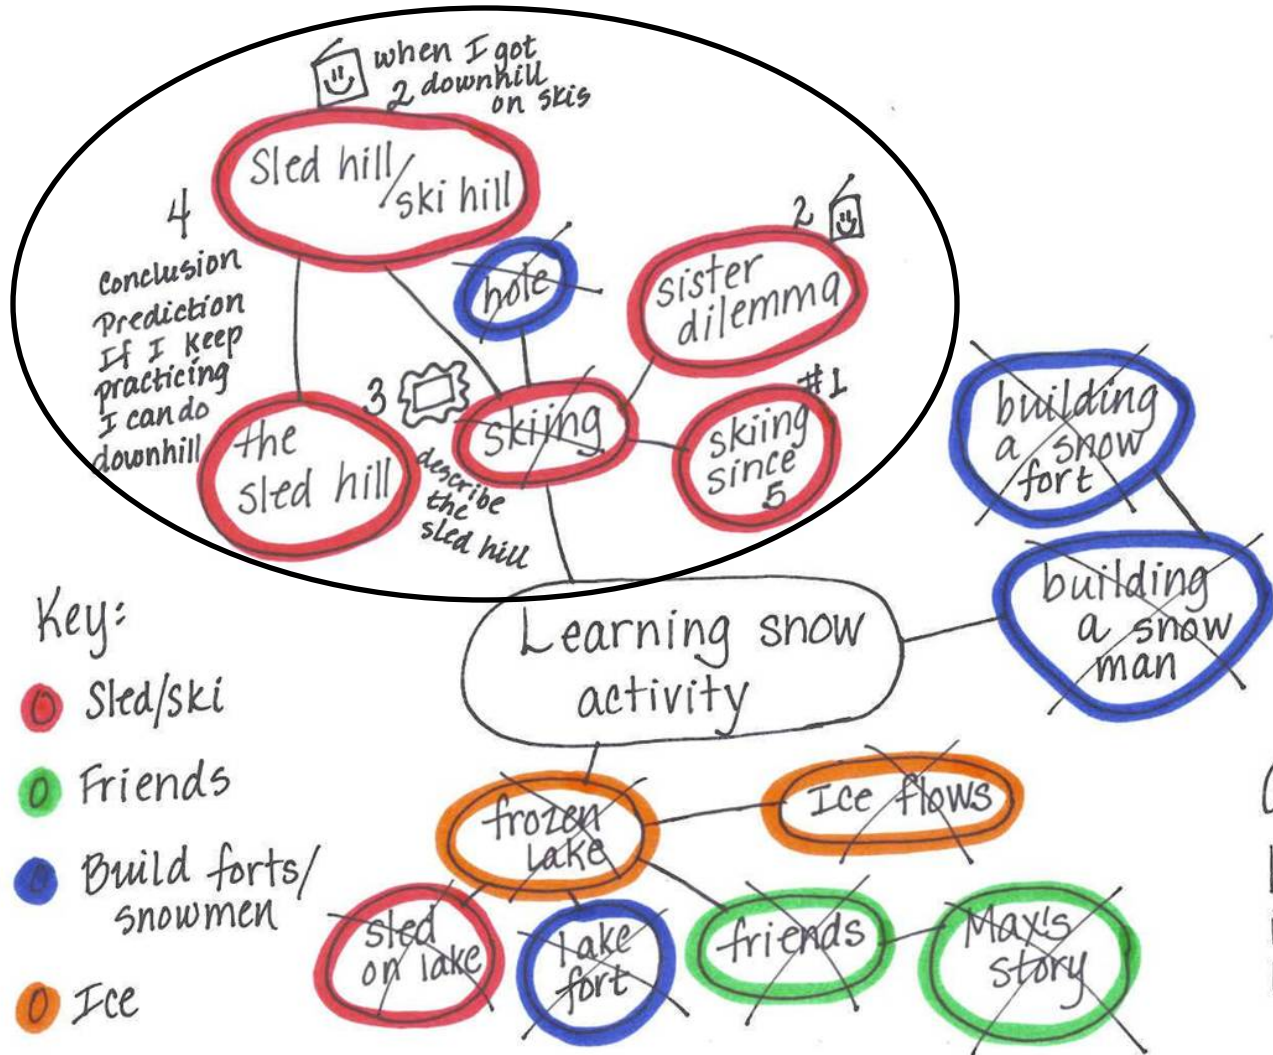 when I got
2 downhill
on skis
Sled hill/
ski hill
4
Conclusion
Prediction
If I keep
practicing
I can do
downhill
hole
2
sister
dilemma
3
skiing
#1
skiing
since
5
the
sled hill
describe
the
sled hill
building
a snow
fort
building
a snow
man
Learning snow
activity
Key:
Sled/ski
Friends
Build forts/
snowmen
Ice
frozen
lake
Ice flows
sled
on lake
lake
fort
friends
Max's
story